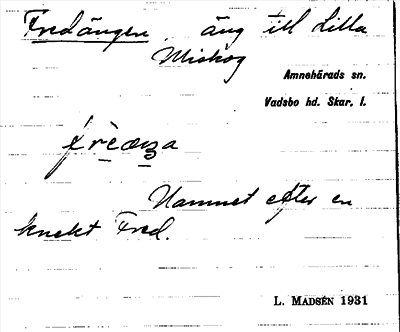 Fredängen, äng till Lilla
Miskog
Amnehärads sn.
Vadsbo hd. Skar. l.
Namnet efter en
knekt Fred.
L. MADSÉN 1931